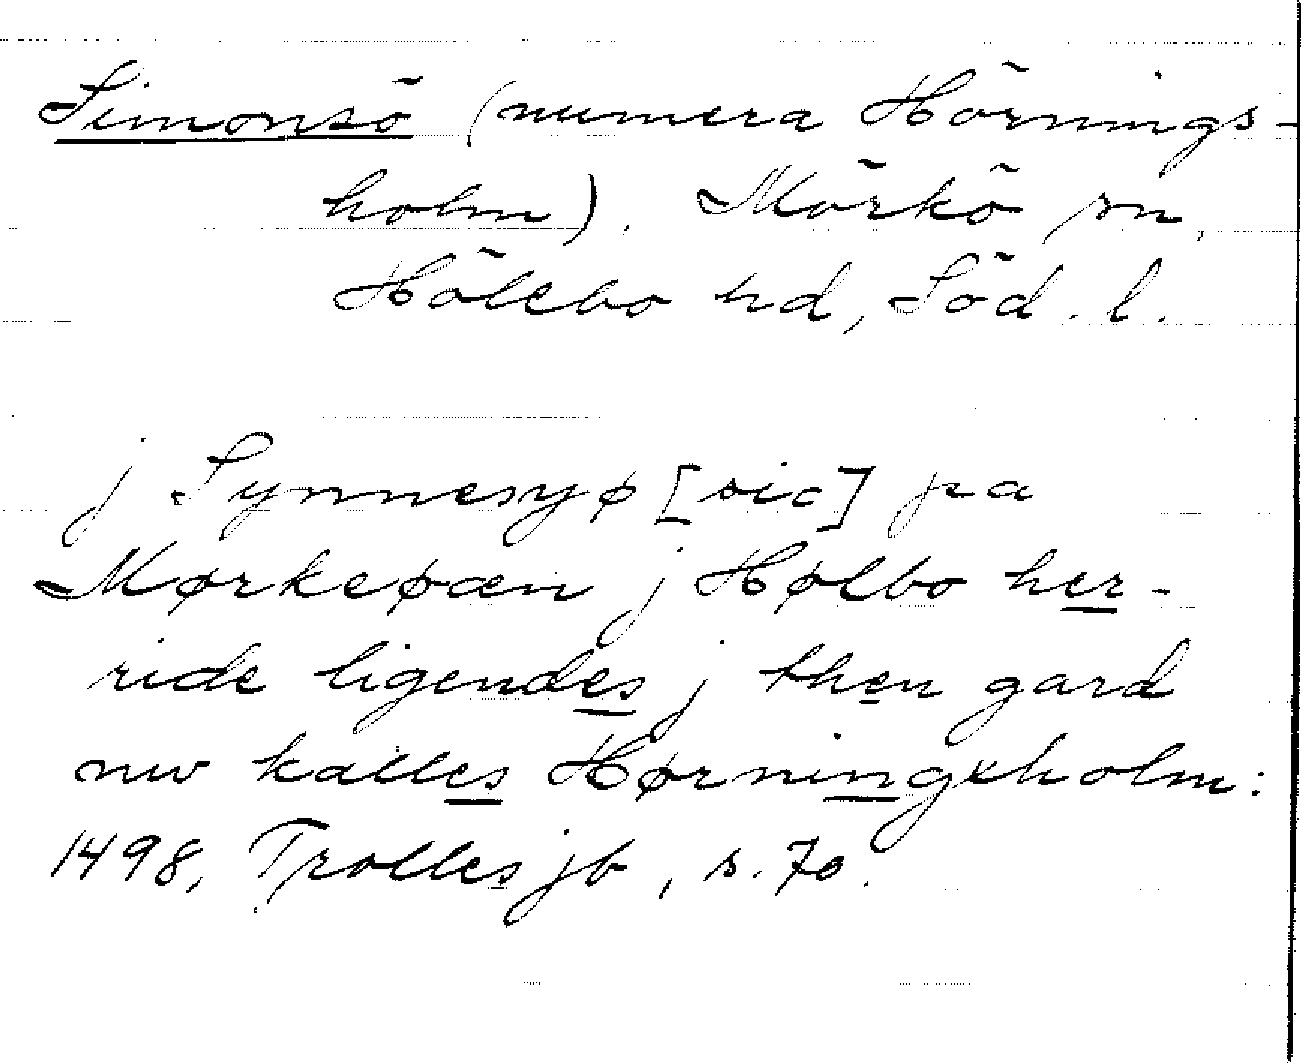 Simonsö (numera Hörnings-
holm). Mörkö sn,
Hölebo hd, Söd. l.
j Synnesyø [sic] pa
Mørkeøæn j Hølbo her-
ride ligendes j then gard
nw kalles Hørningxholm:
1498, Trolles jb, s. 70.